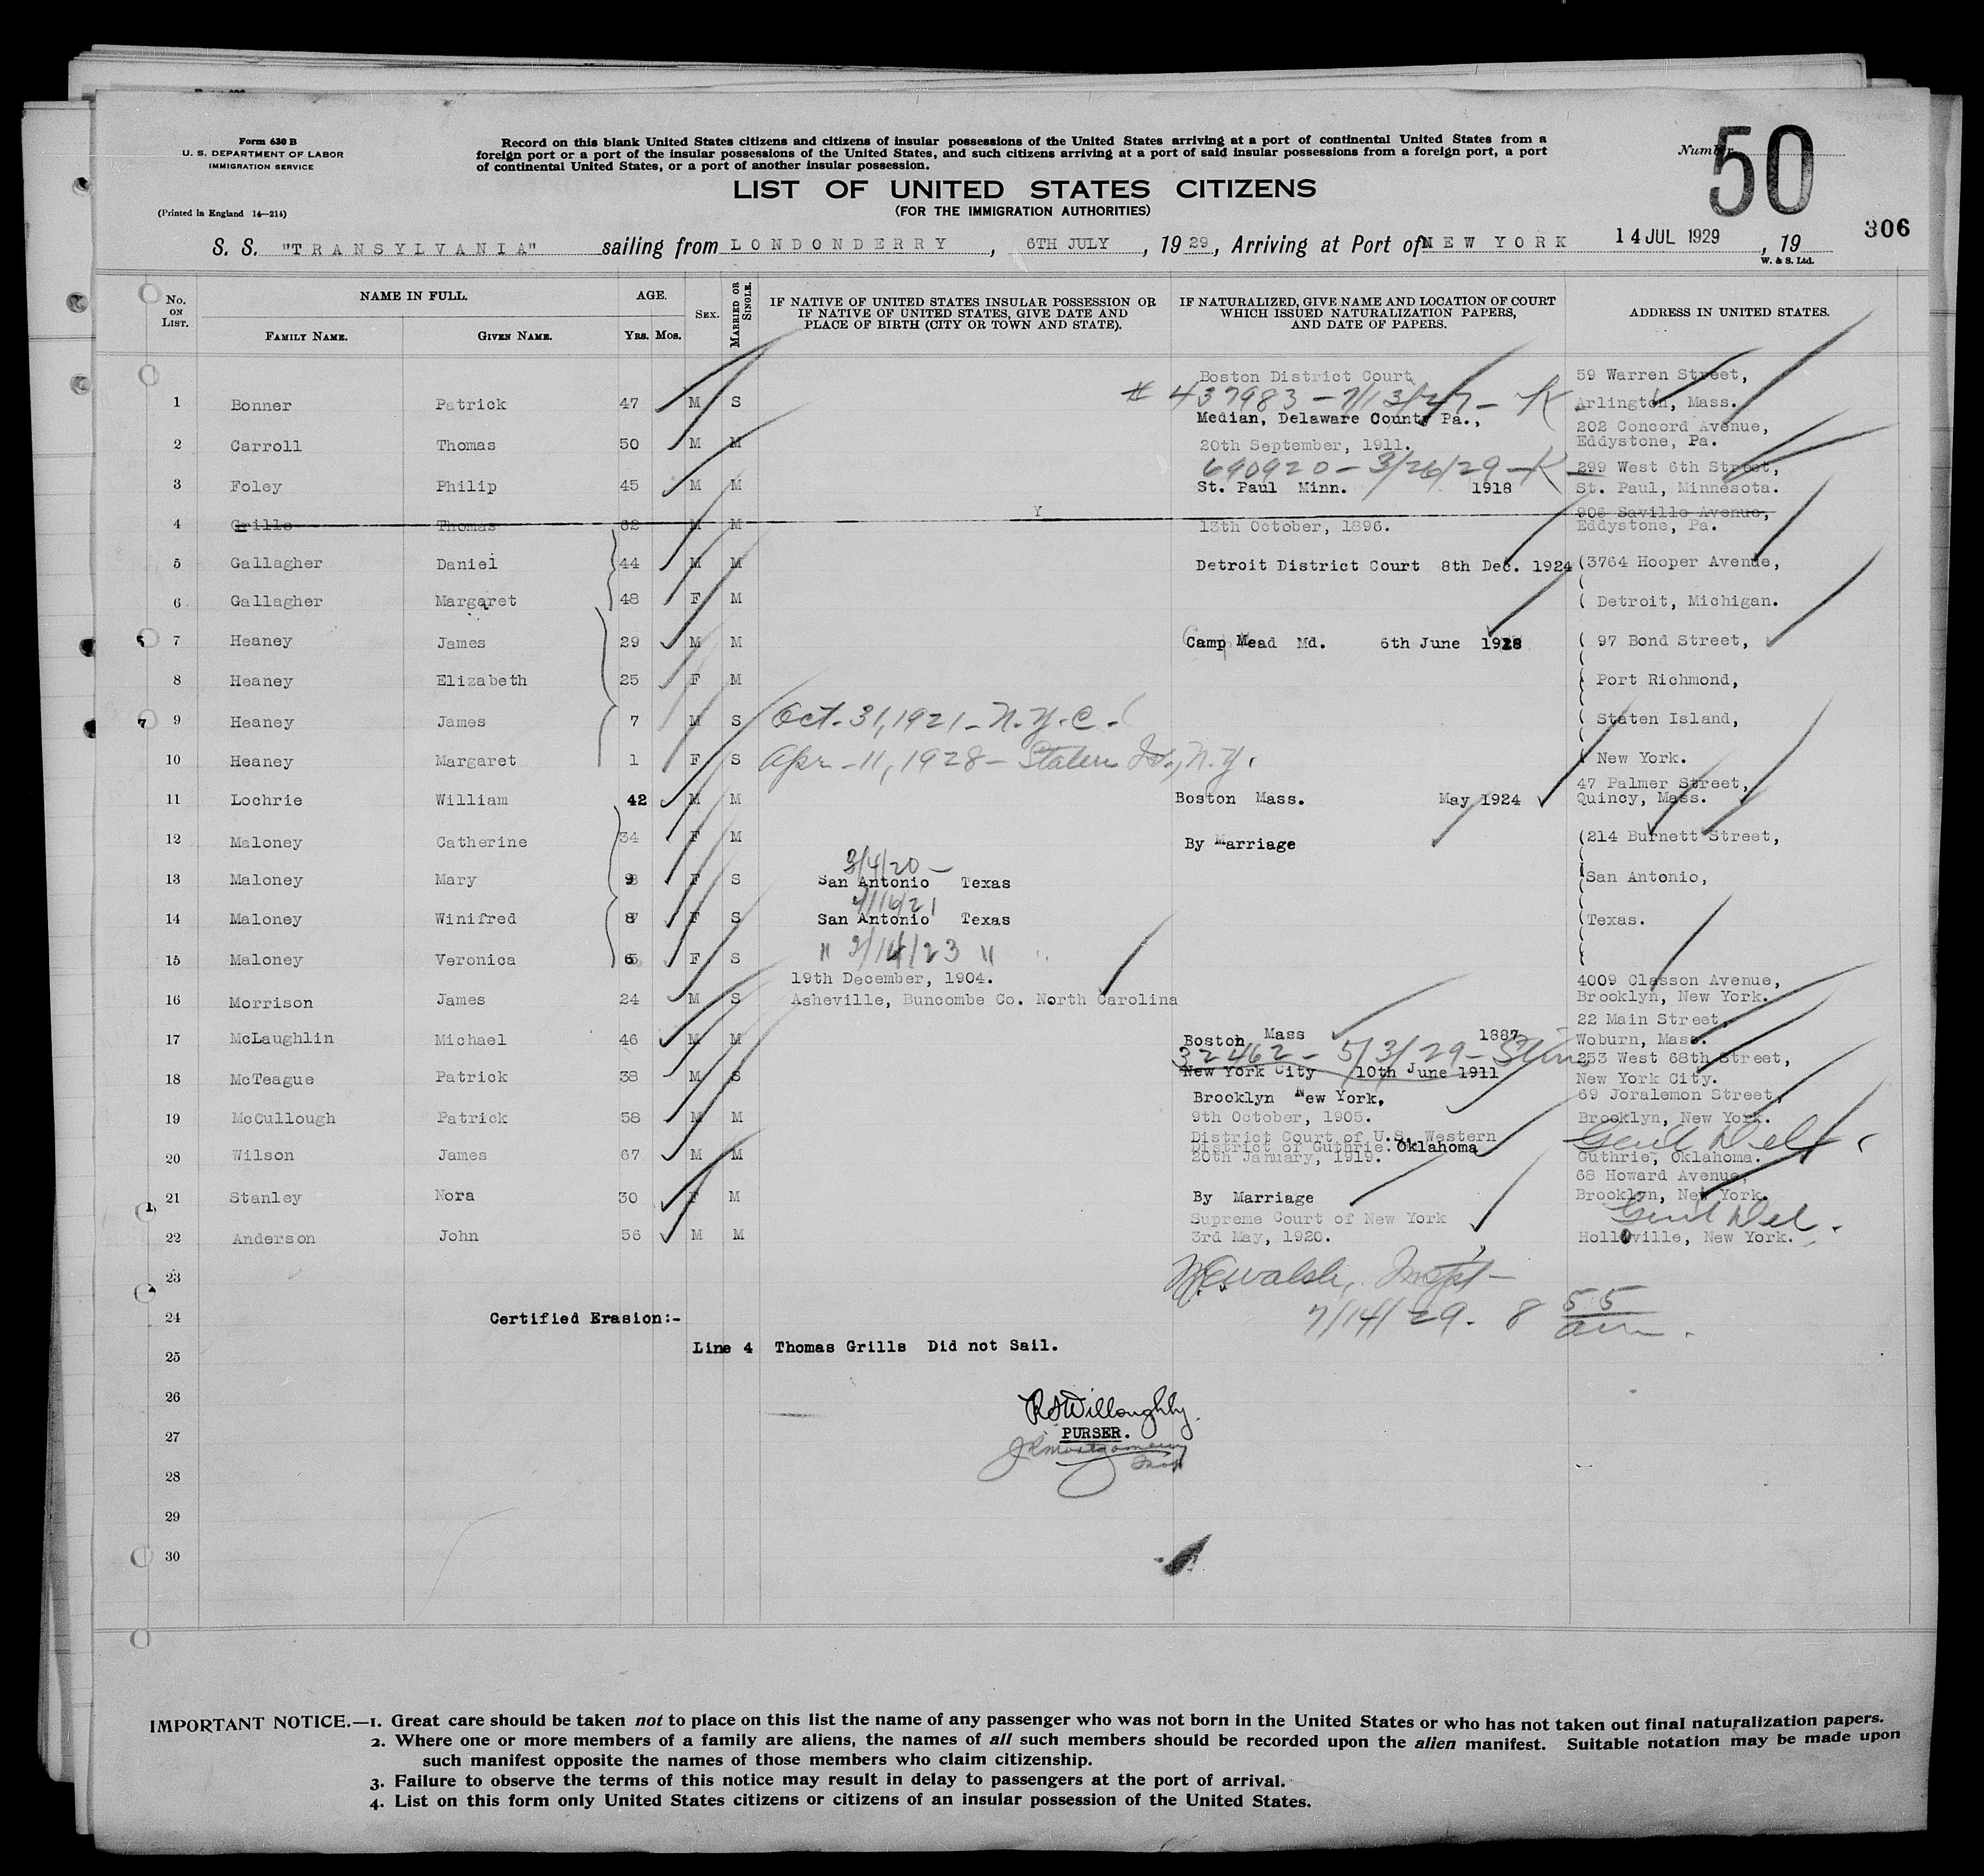 Form 630 B
U. S. DEPARTMENT OF LABOR
IMMIGRATION SERVICE
(Printed in England 14—214)
Record on this blank United States citizens and citizens of insular possessions of the United States arriving at a port of continental United States from a
foreign port or a port of the insular possessions of the United States, and such citizens arriving at a port of said insular possessions from a foreign port, a port
of continental United States, or a port of another insular possession.
Number 50
LIST OF UNITED STATES CITIZENS
(FOR THE IMMIGRATION AUTHORITIES)
306
S. S. "TRANSYLVANIA" sailing from LONDONDERRY, 6TH JULY, 1929, Arriving at Port of NEW YORK 14 JUL 1929, 19
W. & S. Ltd.
No. ON LIST. NAME IN FULL. AGE. SEX. MARRIED OR SINGLE. IF NATIVE OF UNITED STATES INSULAR POSSESSION OR IF NATIVE OF UNITED STATES, GIVE DATE AND PLACE OF BIRTH (CITY OR TOWN AND STATE). IF NATURALIZED, GIVE NAME AND LOCATION OF COURT WHICH ISSUED NATURALIZATION PAPERS, AND DATE OF PAPERS. ADDRESS IN UNITED STATES.
FAMILY NAME. GIVEN NAME. YRS. MOS.
Boston District Court 59 Warren Street,
1 Bonner Patrick 47 M S # 437983 - 7/13/27 - K Arlington, Mass.
Median, Delaware County Pa., 202 Concord Avenue,
2 Carroll Thomas 50 M M 20th September, 1911. Eddystone, Pa.
690920 - 3/26/29 - K 299 West 6th Street,
3 Foley Philip 45 M M St. Paul Minn. 1918 St. Paul, Minnesota.
Y 906 Saville Avenue,
4 Grills Thomas 62 M M 13th October, 1896. Eddystone, Pa.
5 Gallagher Daniel 44 M M Detroit District Court 8th Dec. 1924 (3764 Hooper Avenue,
6 Gallagher Margaret 48 F M ( Detroit, Michigan.
7 Heaney James 29 M M Camp Mead Md. 6th June 1918 ( 97 Bond Street,
8 Heaney Elizabeth 25 F M ( Port Richmond,
9 Heaney James 7 M S Oct. 31, 1921 - N.Y.C. ( Staten Island,
10 Heaney Margaret 1 F S Apr - 11, 1928 - Staten Is., N.Y. ( New York.
47 Palmer Street,
11 Lochrie William 42 M M Boston Mass. May 1924 Quincy, Mass.
12 Maloney Catherine 34 F M By Marriage (214 Burnett Street,
3/4/20 -
13 Maloney Mary 9 F S San Antonio Texas (San Antonio,
14 Maloney Winifred 8 F S San Antonio Texas (Texas.
15 Maloney Veronica 6 F S " 2/14/23 "
19th December, 1904. 4009 Classon Avenue,
16 Morrison James 24 M S Asheville, Buncombe Co. North Carolina Brooklyn, New York.
22 Main Street,
17 McLaughlin Michael 46 M M Boston Mass 1887 Woburn, Mass.
32462 - 5/3/29 - 253 West 68th Street,
18 McTeague Patrick 38 M S New York City 10th June 1911 New York City.
Brooklyn New York, 69 Joralemon Street,
19 McCullough Patrick 58 M M 9th October, 1905. Brooklyn, New York.
District Court of U.S. Western Genl Del
District of Guthrie. Oklahoma
20 Wilson James 67 M M 20th January, 1919. Guthrie, Oklahoma.
68 Howard Avenue,
21 Stanley Nora 30 F M By Marriage Brooklyn, New York.
Supreme Court of New York Genl Del.
22 Anderson John 56 M M 3rd May, 1920. Holloville, New York.
23 Walsh, Inspt -
24 Certified Erasion:- 7/14/29. 8 55 am.
25 Line 4 Thomas Grills Did not Sail.
26 Willoughby.
27 PURSER.
J R Montgomery
28
29
30
IMPORTANT NOTICE.—1. Great care should be taken not to place on this list the name of any passenger who was not born in the United States or who has not taken out final naturalization papers.
2. Where one or more members of a family are aliens, the names of all such members should be recorded upon the alien manifest. Suitable notation may be made upon
such manifest opposite the names of those members who claim citizenship.
3. Failure to observe the terms of this notice may result in delay to passengers at the port of arrival.
4. List on this form only United States citizens or citizens of an insular possession of the United States.